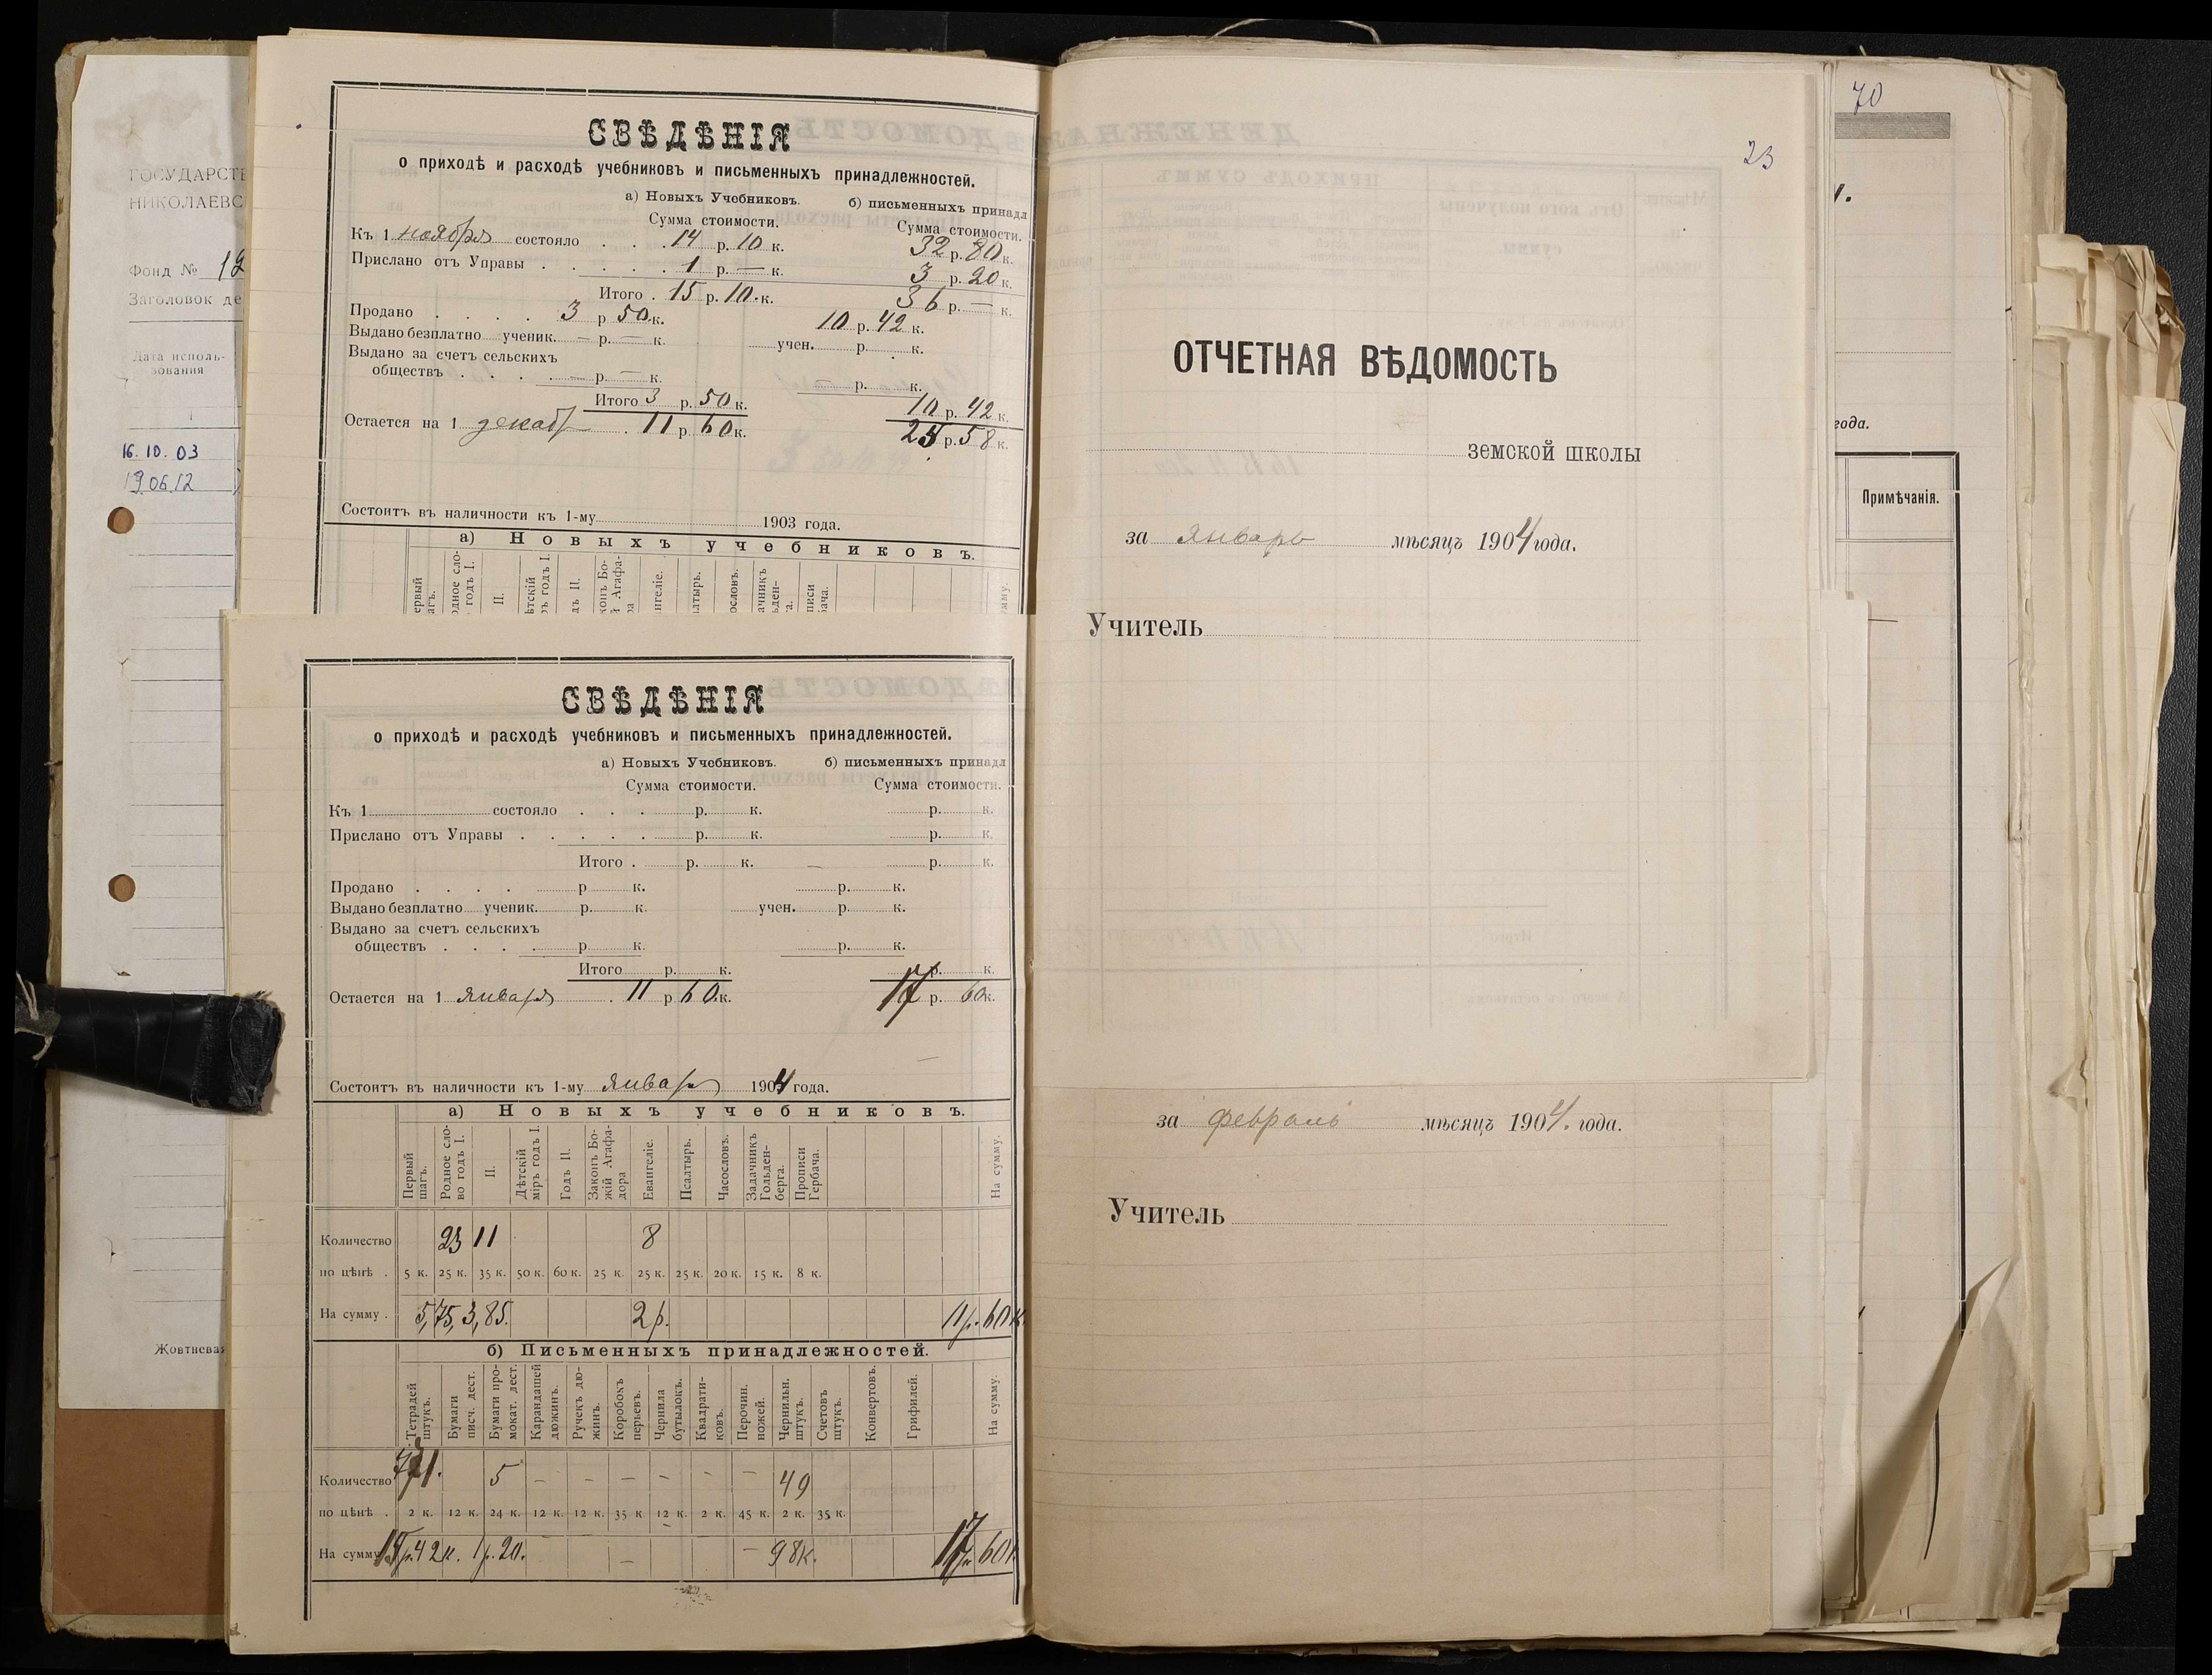 ГОСУДАРСТВ
НИКОЛАЕВС
Фонд № 12
Заголовок де
Дата исполь-
зования
16.10.03
19.06.12
Жовтневая
СВѢДѢНІЯ
о приходѣ и расходѣ учебниковъ и письменныхъ принадлежностей.
а) Новыхъ Учебниковъ. б) письменныхъ принадл
Сумма стоимости. Сумма стоимости.
Къ 1 ноября состояло . . . 14 р. 10 к. 32 р. 80 к.
Прислано отъ Управы . . . . . 1 р. — к. 3 р. 20 к.
Итого . 15 р. 10 к. 36 р. — к.
Продано . . . . 3 р 50 к. 10 р. 42 к.
Выдано безплатно ученик. — р. — к. учен. р. к.
Выдано за счетъ сельскихъ
обществъ . . . . — р. — к. — р. к.
Итого 3 р. 50 к. 10 р. 42 к.
Остается на 1 декаб . 11 р. 60 к. 25 р. 58 к.
Состоитъ въ наличности къ 1-му 1903 года.
а) Новыхъ учебниковъ.
СВѢДѢНІЯ
о приходѣ и расходѣ учебниковъ и письменныхъ принадлежностей.
а) Новыхъ Учебниковъ. б) письменныхъ принадл
Сумма стоимости. Сумма стоимости.
Къ 1 состояло . . . р. к. р. к.
Прислано отъ Управы . . . . . р. к. р. к.
Итого . р. к. — р. к.
Продано . . . . р к. р. к.
Выдано безплатно ученик. р. к. учен. р. к.
Выдано за счетъ сельскихъ
обществъ . . . . р. к. р. к.
Итого р. к. р. к.
Остается на 1 января . 11 р 60 к. 17 р. 60 к.
Состоитъ въ наличности къ 1-му января 1904 года.
а) Новыхъ учебниковъ.
Первый шагъ. Родное сло-во годъ I. II. Дѣтскій міръ годъ I. Годъ II. Законъ Бо-жій Агафа-дора Евангеліе. Псалтырь. Часословъ. Задачникъ Гольден-берга. Прописи Гербача. На сумму.
Количество 23 11 8
по цѣнѣ . 5 к. 25 к. 35 к. 50 к. 60 к. 25 к. 25 к. 25 к. 20 к. 15 к. 8 к.
На сумму . 5,75, 3,85. 2 р. 11 р. 60 к.
б) Письменныхъ принадлежностей.
Тетрадей штукъ. Бумаги писч. дест. Бумаги про-мокат. дест. Карандашей дюжинъ. Ручекъ дю-жинъ. Коробокъ перьевъ. Чернила бутылокъ. Квадрати-ковъ. Перочин. ножей. Чернильн. штукъ. Счетовъ штукъ. Конвертовъ. Грифилей. На сумму.
Количество 771. 5 — — — — — — 49
по цѣнѣ . 2 к. 12 к. 24 к. 12 к. 12 к. 35 к 12 к. 2 к. 45 к. 2 к. 35 к.
На сумму 15 р. 42 к. 1 р. 20. — — 98 к. 17 р. 60 к
23
ОТЧЕТНАЯ ВѢДОМОСТЬ
земской школы
за январь мѣсяцъ 1904 года.
Учитель
за февраль мѣсяцъ 1904. года.
Учитель
70
года.
Примѣчанія.